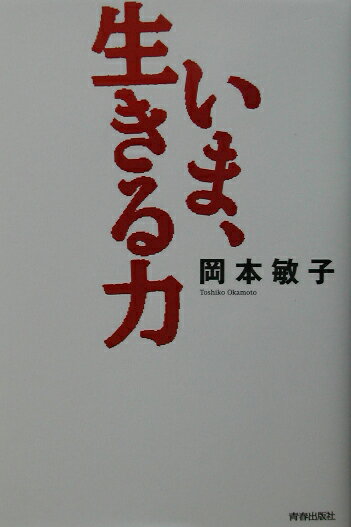 いま、
生きる力
岡本敏子
Toshiko Okamoto
青春出版社